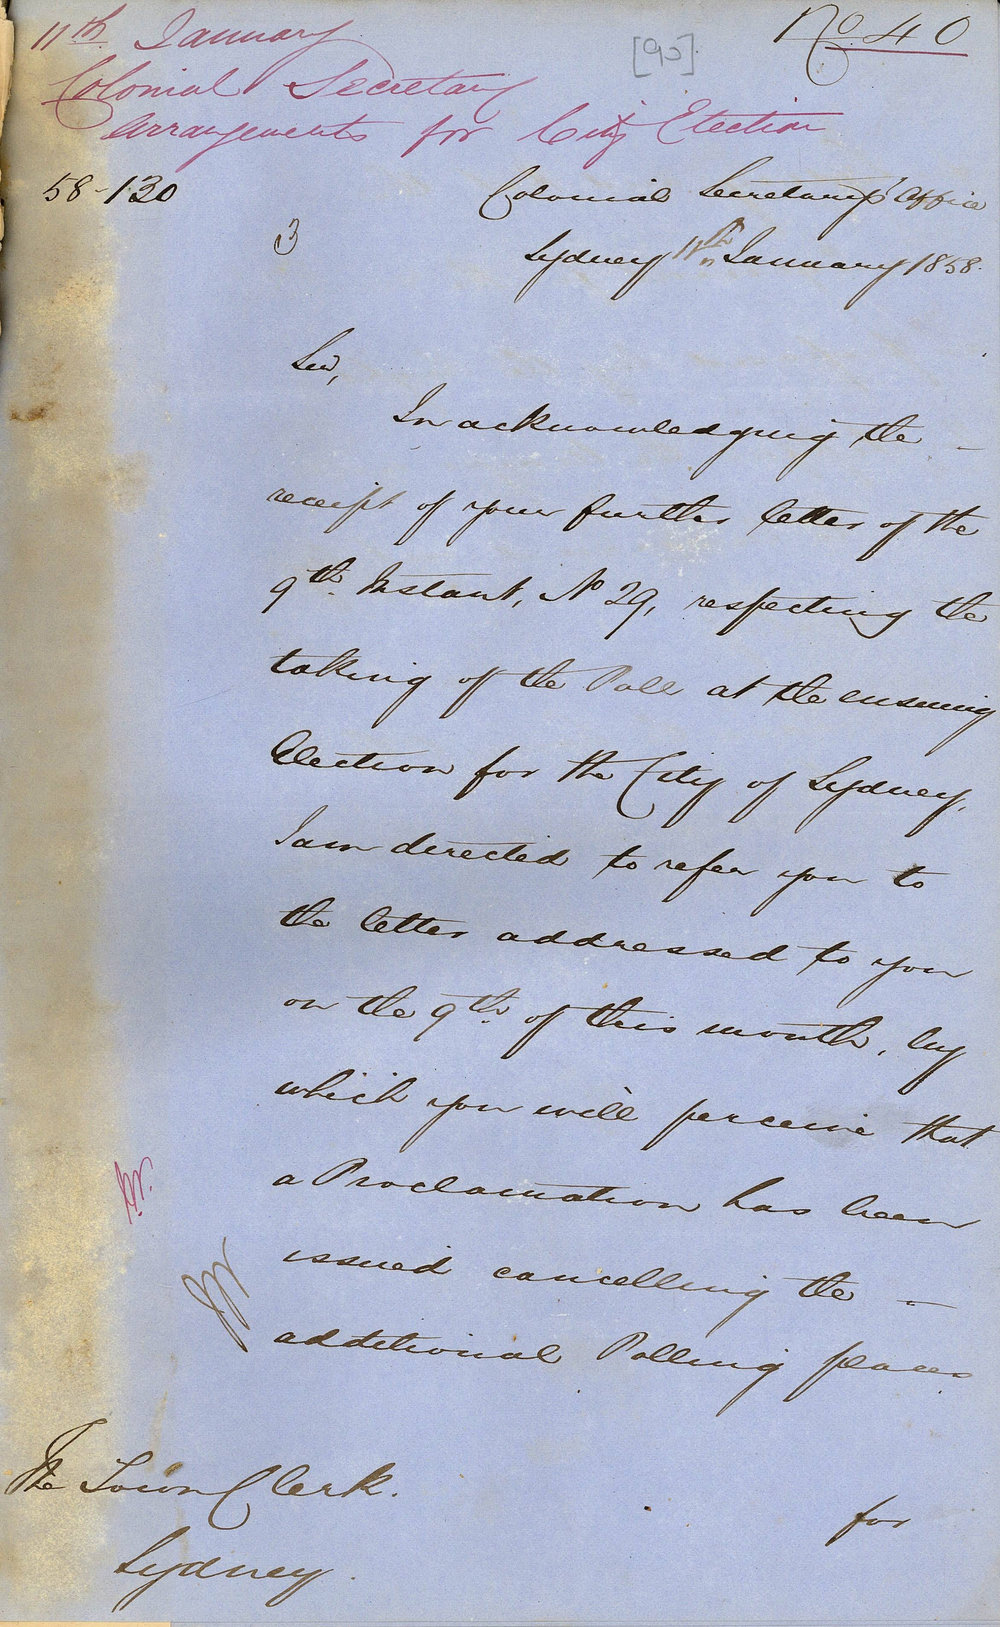 11th January
No. 40
[90]
Colonial Secretary
Arrangements for City Election
58-130
3
Colonial Secretary's Office
Sydney 11th January 1858.
Sir,
In acknowledging the
receipt of your further letter of the
9th Instant, No 29, respecting the
taking of the Poll at the ensuing
Election for the City of Sydney,
I am directed to refer you to
the letter addressed to you
on the 9th of this month, by
which you will perceive that
a Proclamation has been
issued cancelling the
additional Polling places
The Town Clerk.
Sydney.
for